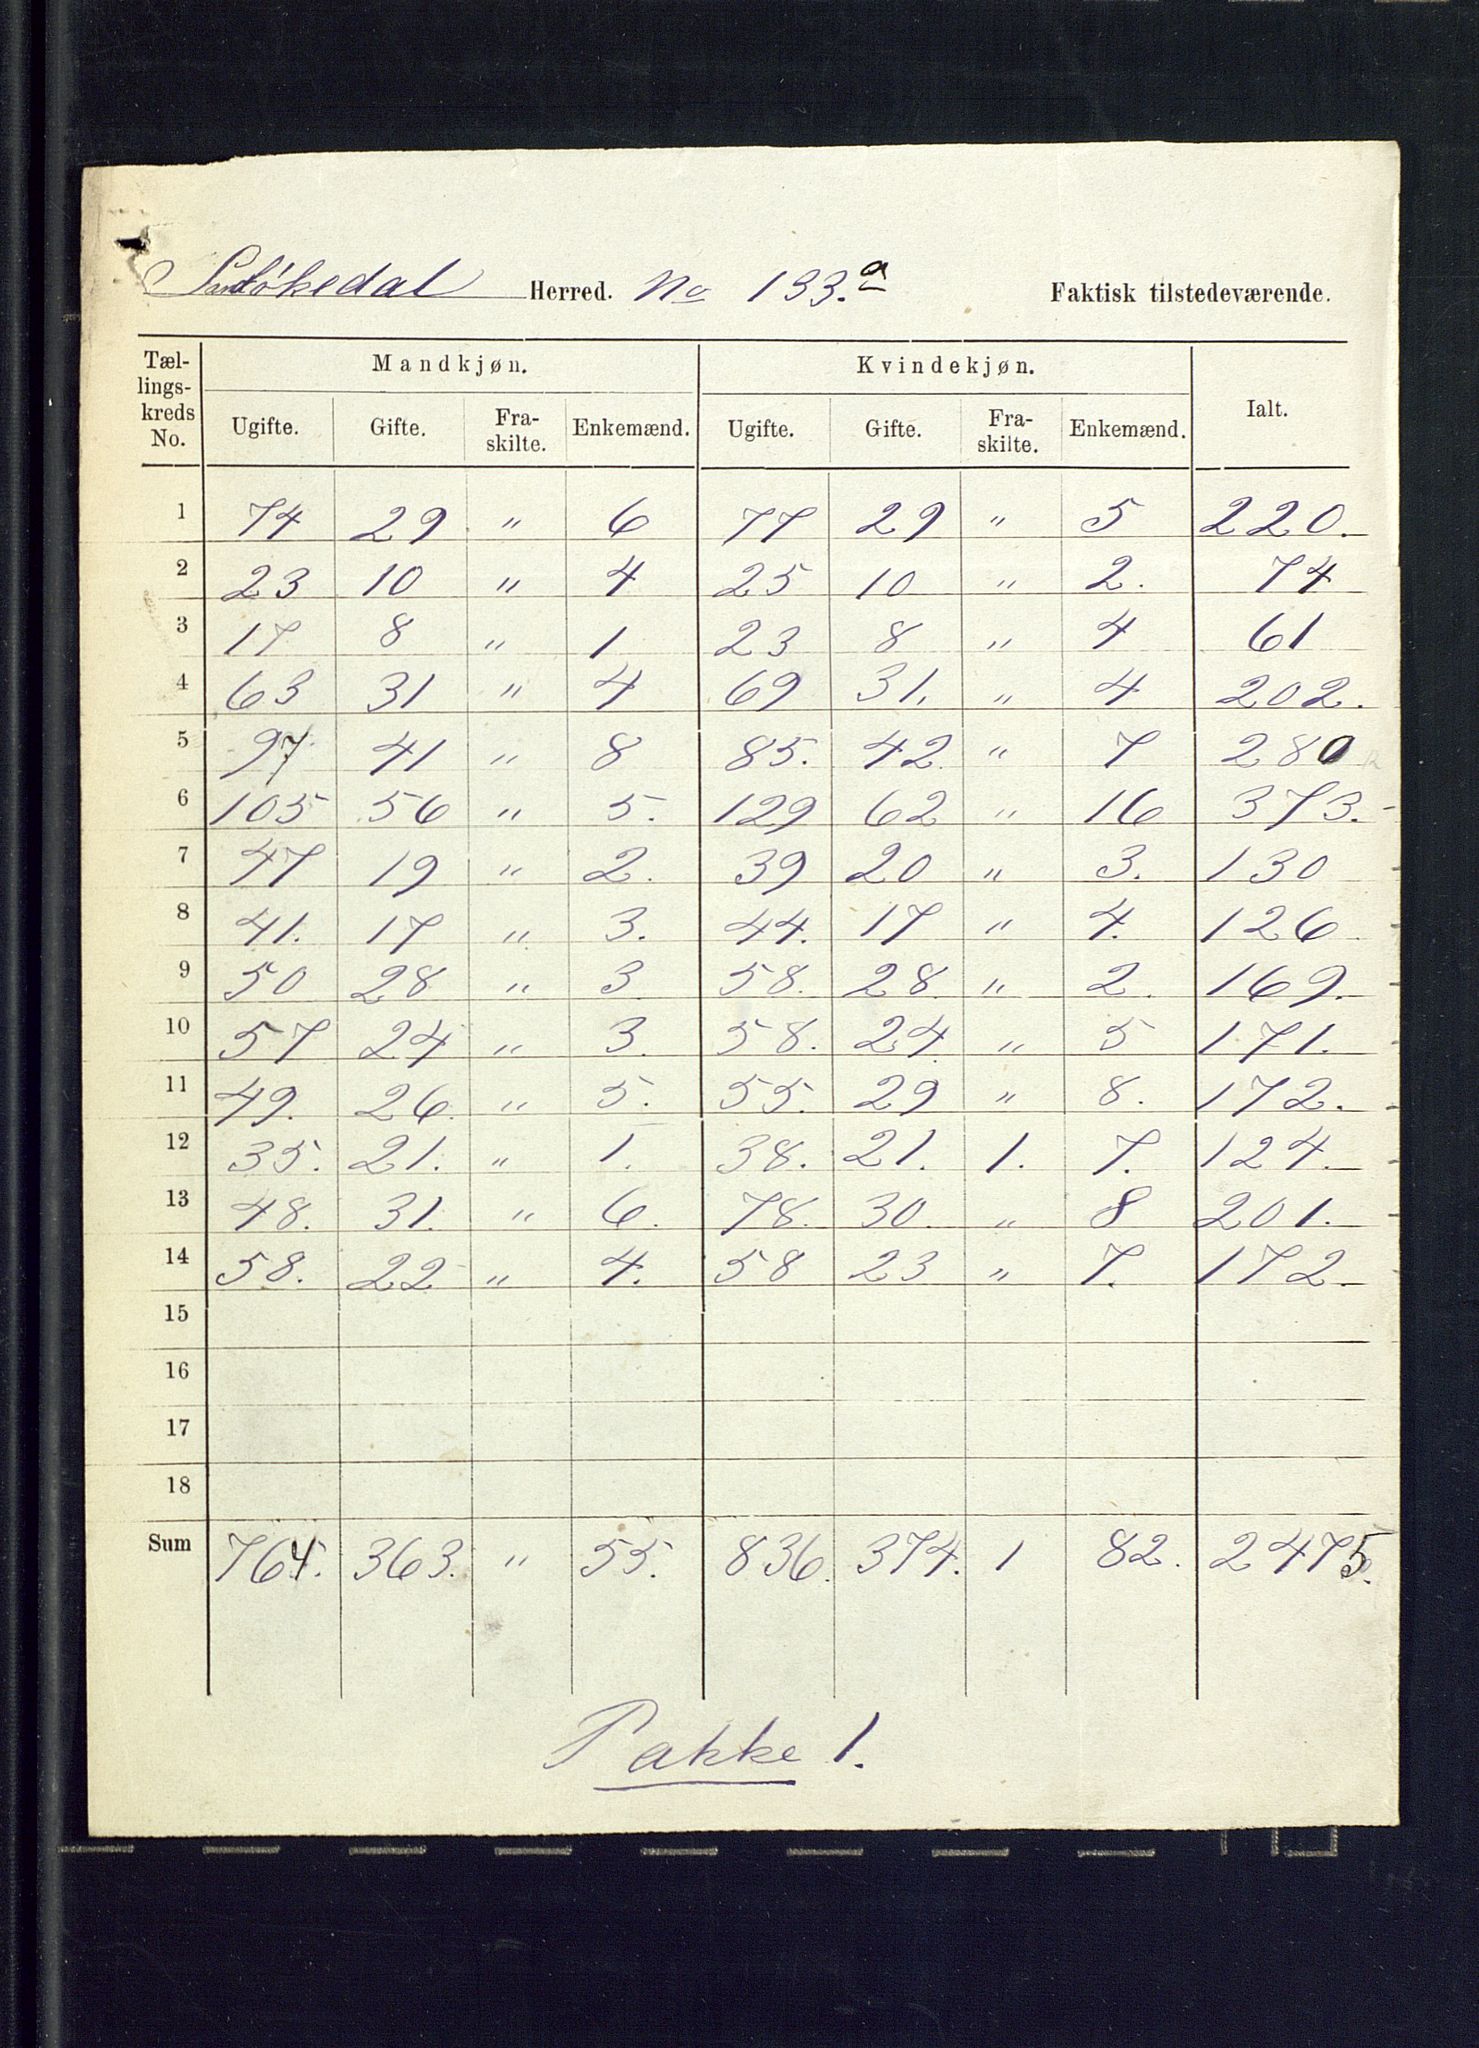 Sandökedal Herred. No 133.a Faktisk tilstedeværende.
Tællingskreds No. Mandkjøn. Kvindekjøn. Ialt.
Ugifte. Gifte. Fraskilte. Enkemænd. Ugifte. Gifte. Fraskilte. Enkemænd.
1 74 29 " 6 77 29 " 5 220.
2 23 10 " 4 25 10 " 2. 74
3 17 8 " 1 23 8 " 4 61
4 63 31 " 4 69 31. " 4 202.
5 97 41 " 8 85. 42 " 7 280
6 105 56 " 5. 129 62 " 16 373.
7 47 19 " 2. 39 20 " 3. 130
8 41. 17 " 3. 44. 17 " 4. 126
9 50 28 " 3 58. 28. " 2. 169.
10 57 24 " 3. 58. 24. " 5 171.
11 49. 26. " 5. 55. 29 " 8. 172.
12 35. 21. " 1. 38. 21. 1. 7. 124.
13 48. 31. " 6. 78. 30. " 8 201.
14 58. 22 " 4. 58 23 " 7. 172.
15
16
17
18
Sum 764. 363. " 55. 836. 374. 1 82. 2475.
Pakke 1.